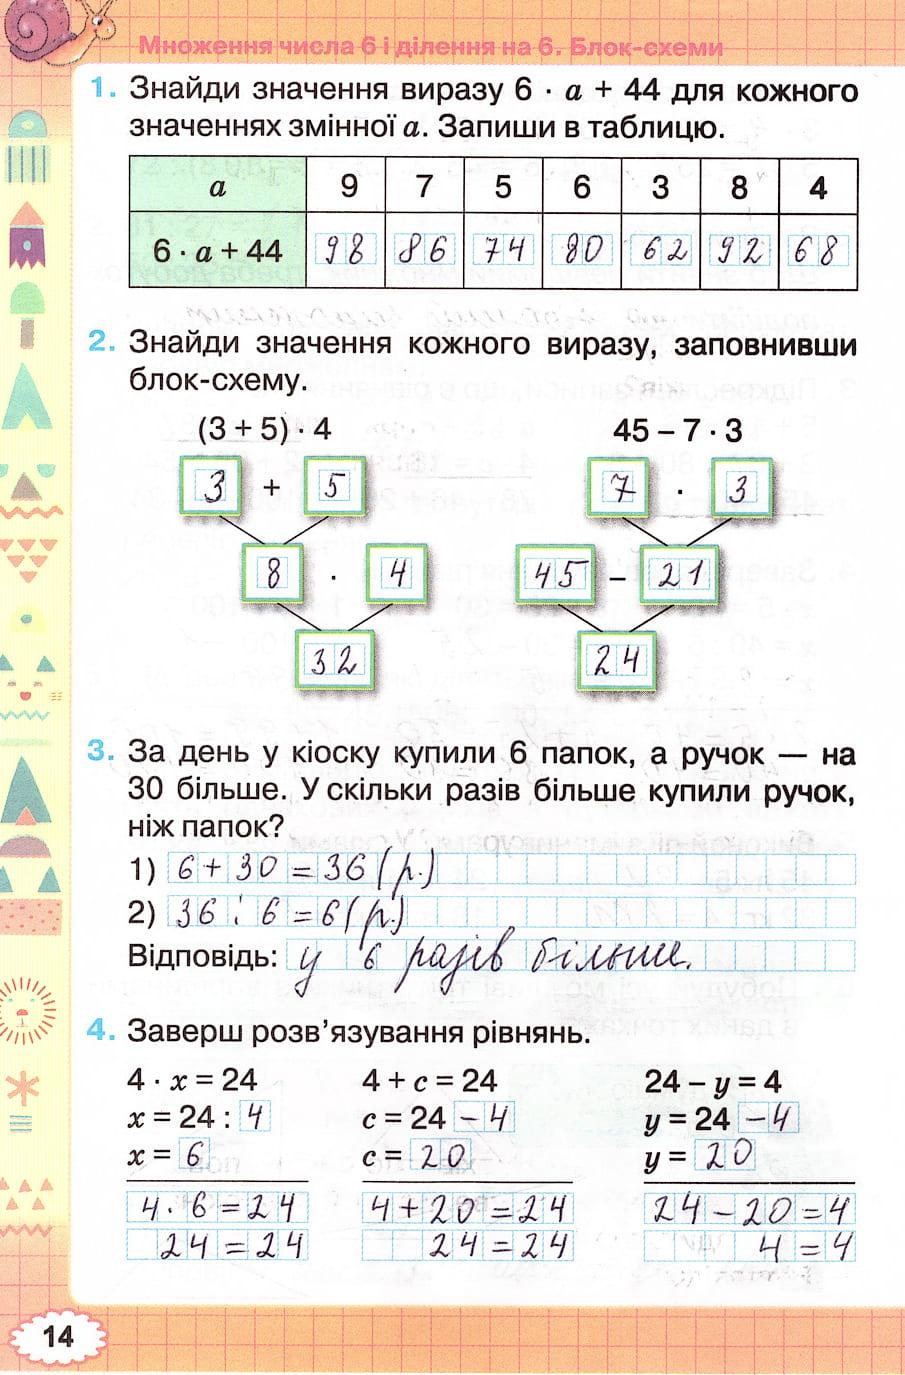 Множення числа 6 і ділення на 6. Блок-схеми
1. Знайди значення виразу 6 · a + 44 для кожного
значеннях змінної a. Запиши в таблицю.
a 9 7 5 6 3 8 4
6 · a + 44 98 86 74 80 62 92 68
2. Знайди значення кожного виразу, заповнивши
блок-схему.
(3 + 5) · 4 45 – 7 · 3
3 + 5 7 · 3
8 · 4 45 – 21
32 24
3. За день у кіоску купили 6 папок, а ручок — на
30 більше. У скільки разів більше купили ручок,
ніж папок?
1) 6 + 30 = 36 (р.)
2) 36 : 6 = 6 (р.)
Відповідь: у 6 разів більше.
4. Заверш розв’язування рівнянь.
4 · x = 24 4 + c = 24 24 – y = 4
x = 24 : 4 c = 24 – 4 y = 24 – 4
x = 6 c = 20 y = 20
4 · 6 = 24 4 + 20 = 24 24 – 20 = 4
24 = 24 24 = 24 4 = 4
14